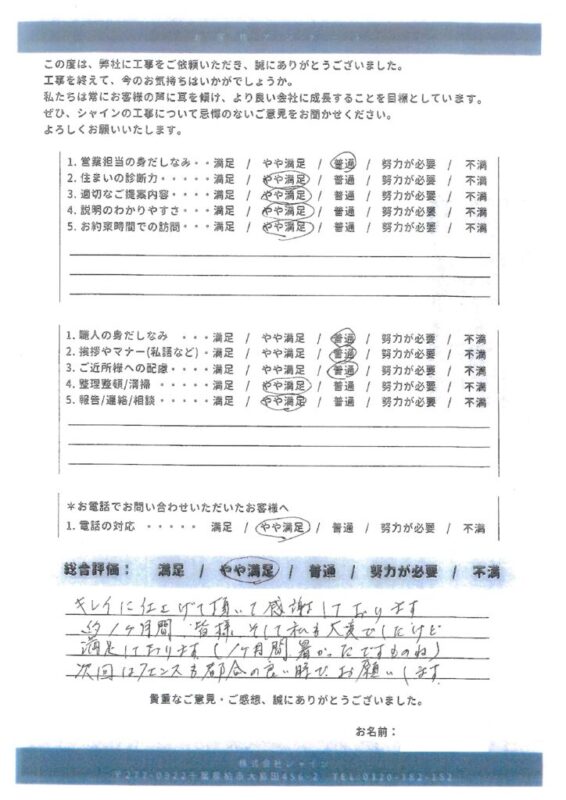 お客様アンケート
この度は、弊社に工事をご依頼いただき、誠にありがとうございました。
工事を終えて、今のお気持ちはいかがでしょうか。
私たちは常にお客様の声に耳を傾け、より良い会社に成長することを目標としています。
ぜひ、シャインの工事について忌憚のないご意見をお聞かせください。
よろしくお願いいたします。
1. 営業担当の身だしなみ・・満足 / やや満足 / 普通 / 努力が必要 / 不満
2. 住まいの診断力・・・・・満足 / やや満足 / 普通 / 努力が必要 / 不満
3. 適切なご提案内容・・・・満足 / やや満足 / 普通 / 努力が必要 / 不満
4. 説明のわかりやすさ・・・満足 / やや満足 / 普通 / 努力が必要 / 不満
5. お約束時間での訪問・・・満足 / やや満足 / 普通 / 努力が必要 / 不満
1. 職人の身だしなみ ・・・満足 / やや満足 / 普通 / 努力が必要 / 不満
2. 挨拶やマナー(私語など)・満足 / やや満足 / 普通 / 努力が必要 / 不満
3. ご近所様への配慮・・・・満足 / やや満足 / 普通 / 努力が必要 / 不満
4. 整理整頓/清掃 ・・・・満足 / やや満足 / 普通 / 努力が必要 / 不満
5. 報告/連絡/相談・・・・満足 / やや満足 / 普通 / 努力が必要 / 不満
*お電話でお問い合わせいただいたお客様へ
1. 電話の対応 ・・・・・ 満足 / やや満足 / 普通 / 努力が必要 / 不満
総合評価： 満足 / やや満足 / 普通 / 努力が必要 / 不満
キレイに仕上げて頂いて感謝しております
約1ケ月間 皆様、そして私も大変でしたけど
満足しております(1ケ月間 暑かったですものね)
次回はフェンスも都合の良い時で、お願いします
貴重なご意見・ご感想、誠にありがとうございました。
お名前：
株式会社シャイン
〒277-0922千葉県柏市大島田456-2 TEL:0120-182-152